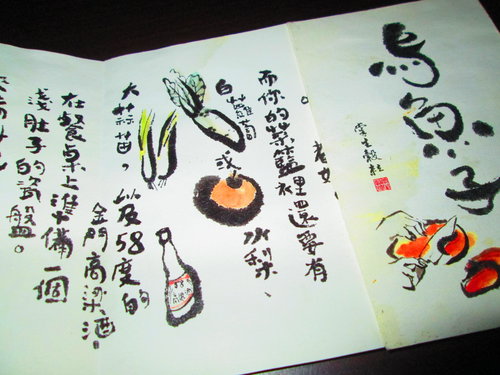 烏魚子
掌生穀粒
而你的菜籃裡還需有
白蘿蔔或水梨、
大蒜苗。以及58度的
金門高粱酒。
在餐桌上準備一個
淺肚子的瓷盤。